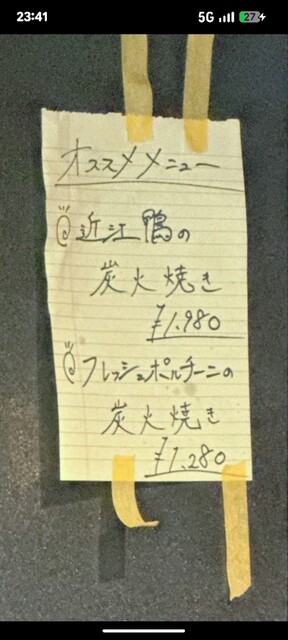 23:41
5G
27
オススメメニュー
近江鴨の
炭火焼き
¥1.980
フレッシュポルチーニの
炭火焼き
¥1.280